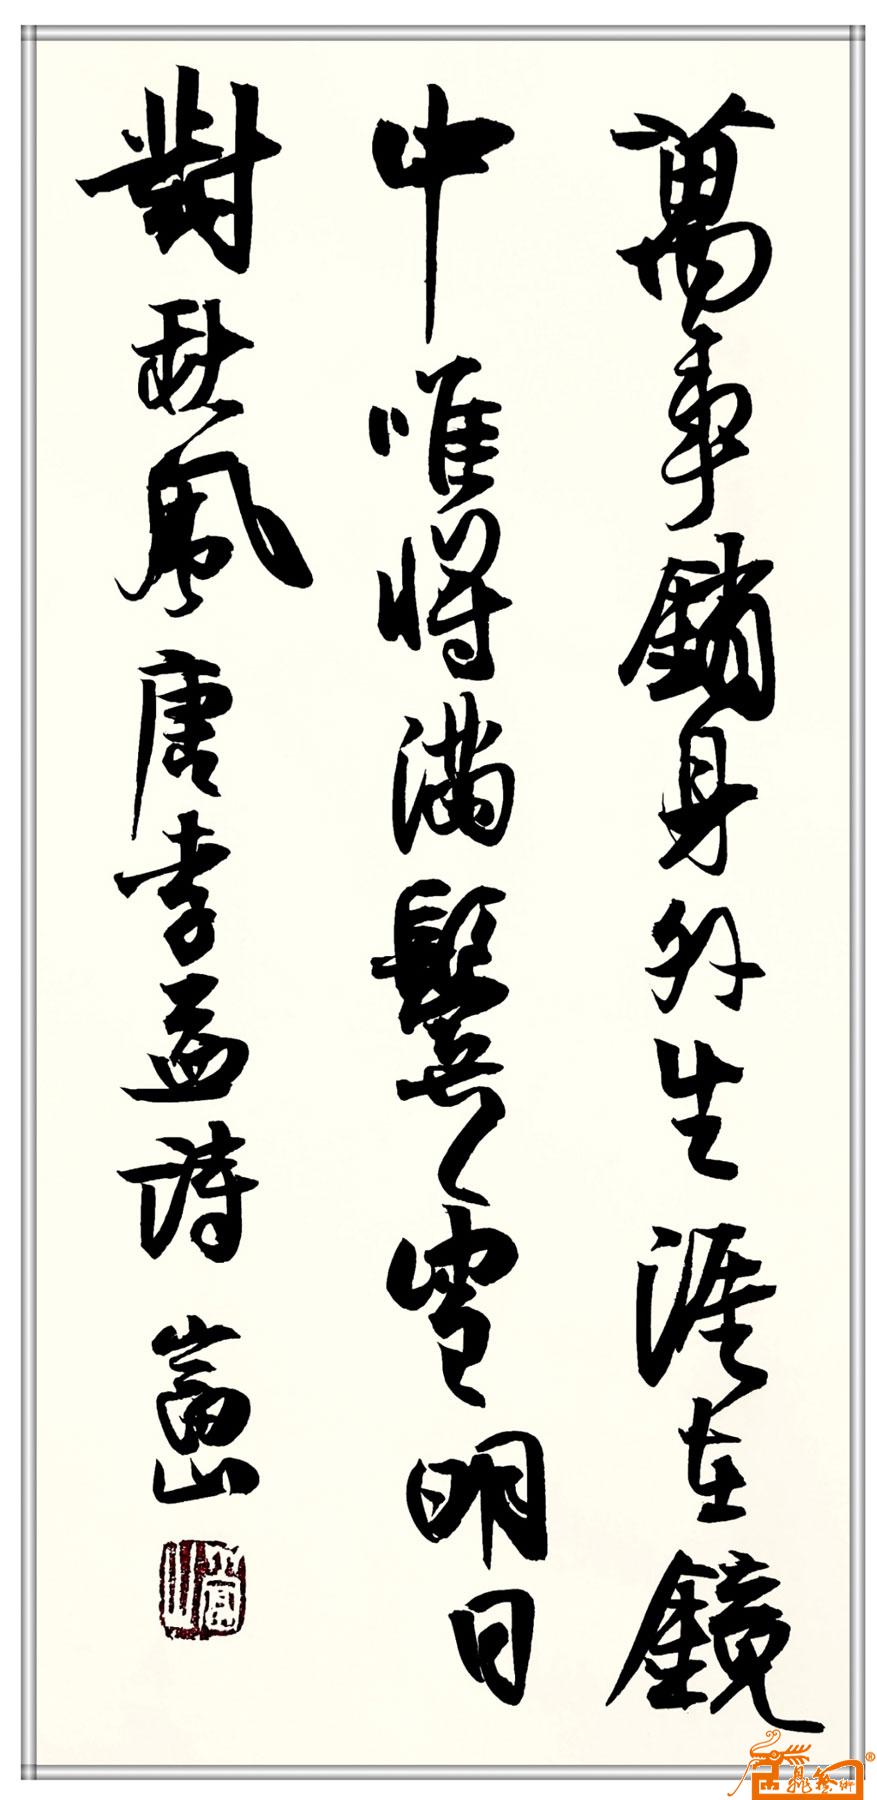 萬事銷身外生涯在鏡
中唯將滿鬢雪明日
對秋風唐李益詩 嵩山